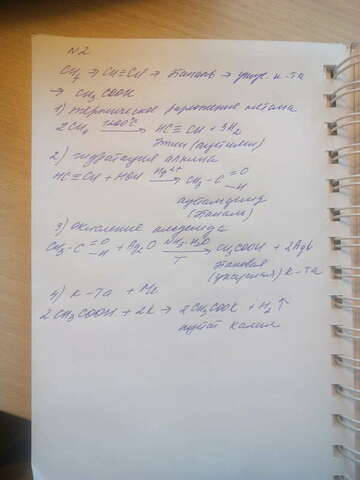 N2
CH₄ → CH≡CH → Этаналь → уксус. к-та
→ CH₃COOK
1) термическое разложение метана
2CH₄ 1500°C→ HC≡CH + 3H₂
этин (ацетилен)
2) гидратация алкина
HC≡CH + HOH Hg²⁺→ CH₃-C=O
-H
ацетальдегид
(этаналь)
3) окисление альдегида
CH₃-C=O-H + Ag₂O NH₃·H₂O→ CH₃COOH + 2Ag↓
T
этановая
(уксусная) к-та
4) к-та + Me
2CH₃COOH + 2K → 2CH₃COOK + H₂↑
ацетат калия